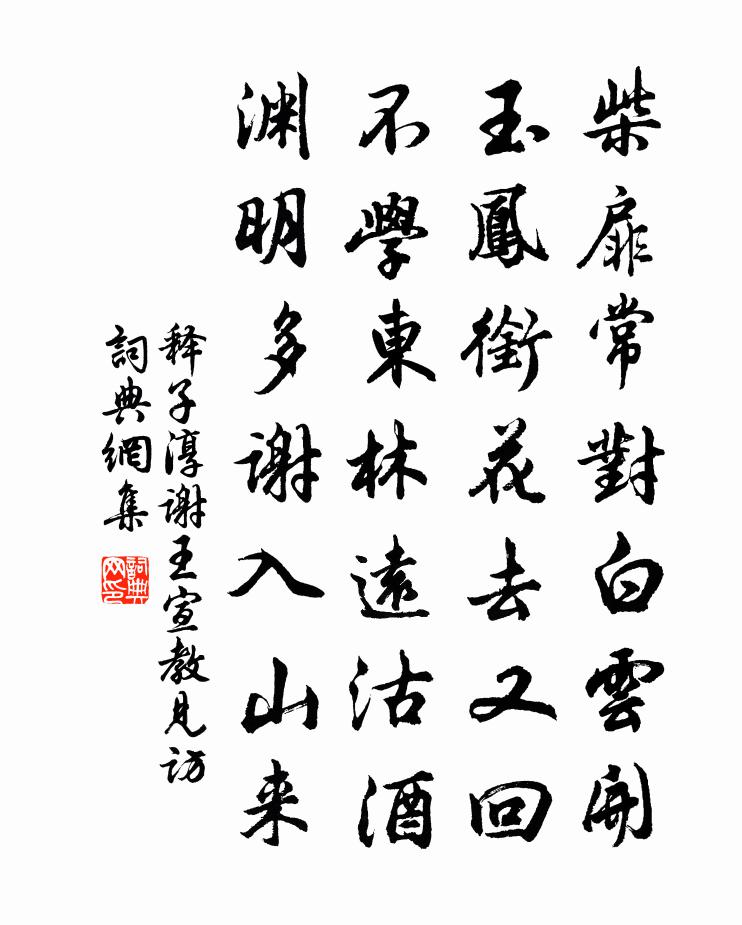 柴扉常對白雲開
玉鳳銜花去又回
不學東林遠沽酒
渊明多謝入山来
释子淳谢王宣教見访
詞典網集
詞典网印